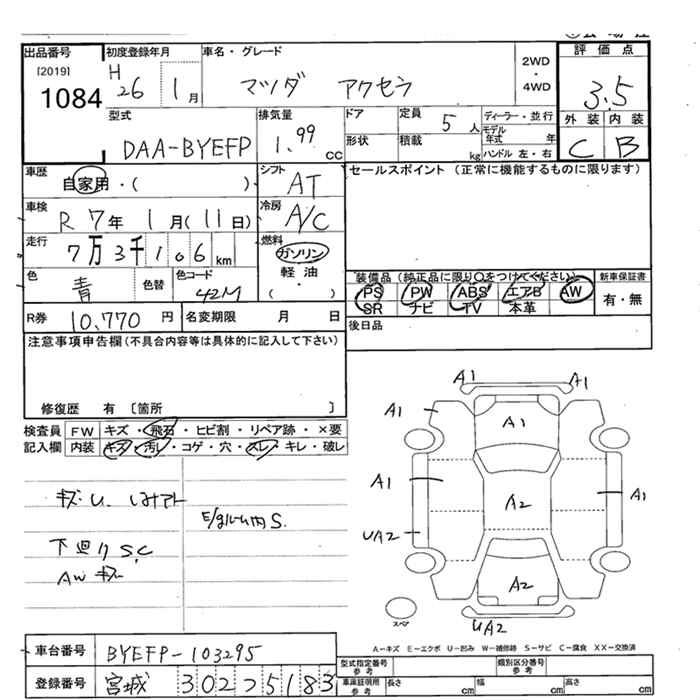 出品番号 初度登録年月 車名・グレード 評価点
[2019] H 26 1月 マツダ アクセラ 2WD・4WD 3.5
1084
型式 排気量 ドア 定員 5人 ディーラー・並行 外装 内装
DAA-BYEFP 1.99 CC 形状 積載 kg モデル年式 年 ハンドル 左・右 C B
車歴 自家用・( ) シフト AT セールスポイント (正常に機能するものに限ります)
車検 R 7年 1月(11日) 冷房 A/C
走行 7万3千106 km 燃料 ガソリン
軽油
( )
色 青 色替 色コード 42M
装備品 (純正品に限り○をつけてください) 新車保証書
PS PW ABS エアB AW 有・無
SR ナビ TV 本革
R券 10,770 円 名変期限 月 日 後日品
注意事項申告欄(不具合内容等は具体的に記入して下さい)
修復歴 有 [箇所 ]
検査員 FW キズ・飛石・ヒビ割・リペア跡・×要
記入欄 内装 キズ・汚レ・コゲ・穴・スレ・キレ・破レ
キズU. シミアト
S.
下廻りS,C
AWキズ
A1 A1
A1 A1
A1 A2 A1
UA2
A2
スペア UA2
A-キズ E-エクボ U-凹み W-補修跡 S-サビ C-腐食 XX-交換済
車台番号 BYEFP-103295
型式指定番号 参考 類別区分番号 参考
登録番号 宮城 302 5183
車庫証明用 参考 長さ cm 幅 cm 高さ cm